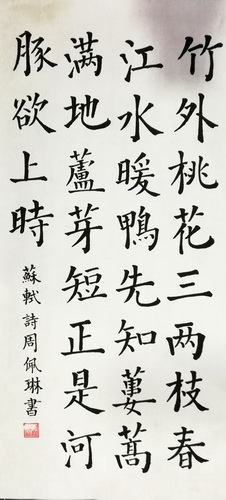 竹外桃花三两枝春
江水暖鴨先知蔞蒿
满地蘆芽短正是河
豚欲上時
蘇軾詩周佩琳書